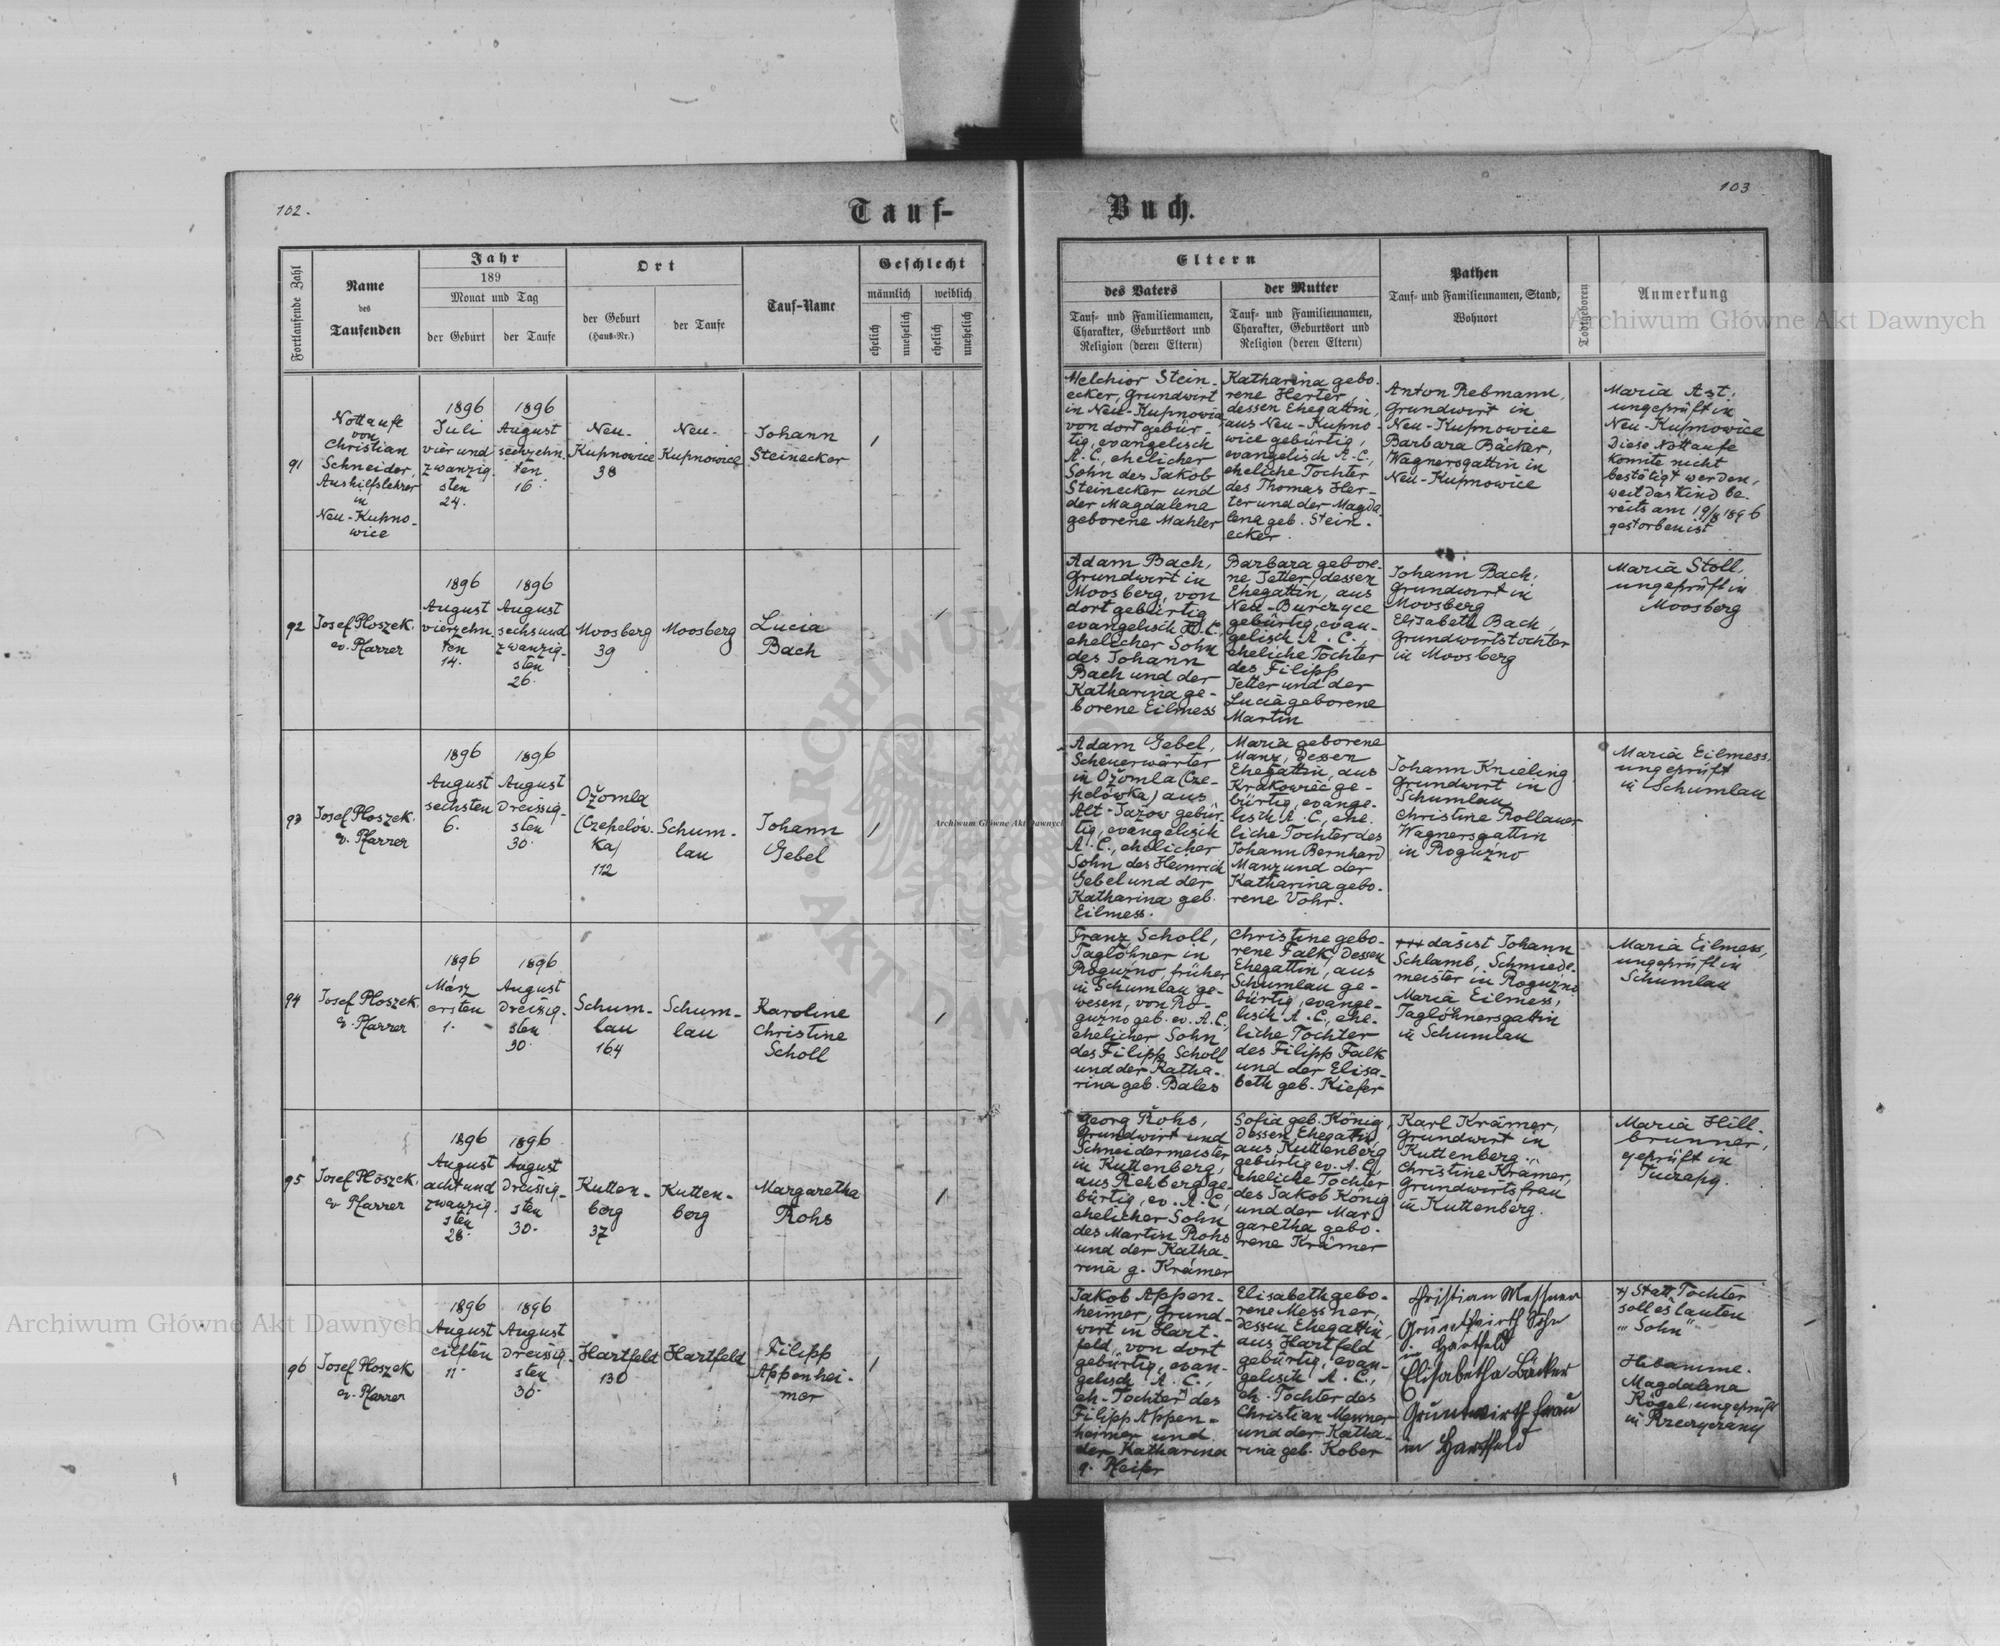 102.
Tauf-
Fortlaufende Zahl
Name
des
Taufenden
Jahr
189
Monat und Tag
der Geburt
der Taufe
Ort
der Geburt
(Haus-Nr.)
der Taufe
Tauf-Name
Geschlecht
männlich
weiblich
ehelich
unehelich
ehelich
unehelich
91
Nottaufe
von
Christian
Schneider
Aushilfslehrer
in
Neu-Kupno-
wice
1896
Juli
vier und
zwanzig-
sten
24.
1896
August
sechzehn-
ten
16.
Neu-
Kupnowice
38
Neu-
Kupnowice
Johann
Steinecker
1
92
Josef Ploszek.
ev. Pfarrer
1896
August
vierzehn-
ten
14.
1896
August
sechsund
zwanzig-
sten
26.
Moosberg
39
Moosberg
Lucia
Bach
1
93
Josef Ploszek.
ev. Pfarrer
1896
August
sechsten
6.
1896
August
dreissig-
sten
30.
Ožomla
(Czepelów-
ka)
112
Schum-
lau
Johann
Gebel
1
94
Josef Ploszek
ev. Pfarrer
1896
März
ersten
1.
1896
August
dreissig-
sten
30.
Schum-
lau
164
Schum-
lau
Karoline
Christine
Scholl
1
95
Josef Ploszek.
ev Pfarrer
1896
August
achtund
zwanzig-
sten
28.
1896
August
dreissig-
sten
30.
Kutten-
berg
37
Kutten-
berg
Margaretha
Rohs
1
96
Josef Ploszek
ev. Pfarrer
1896
August
eilften
11.
1896
August
dreissig-
sten
30.
Hartfeld
130
Hartfeld
Filipp
Appenhei-
mer
1
103
Buch.
Eltern
des Vaters
Tauf- und Familiennamen,
Charakter, Geburtsort und
Religion (deren Eltern)
der Mutter
Tauf- und Familiennamen,
Charakter, Geburtsort und
Religion (deren Eltern)
Pathen
Tauf- und Familiennamen, Stand,
Wohnort
Todtgeboren
Anmerkung
Melchior Stein-
ecker, Grundwirt
in Neu-Kupnowice
von dort gebür-
tig, evangelisch
A.C., ehelicher
Sohn des Jakob
Steinecker und
der Magdalena
geborene Mahler
Katharina gebo-
rene Herter,
dessen Ehegattin,
aus Neu-Kupno-
wice gebürtig,
evangelisch A.C.,
eheliche Tochter
des Thomas Her-
ter und der Magda-
lena geb. Stein-
ecker.
Anton Rebmann,
Grundwirt in
Neu-Kupnowice
Barbara Bäcker,
Wagnersgattin in
Neu-Kupnowice
Maria Ast,
ungeprüft in
Neu-Kupnowice
Diese Nottaufe
konnte nicht
bestätigt werden,
weil das Kind be-
reits am 19/8 1896
gestorben ist
Adam Bach,
Grundwirt in
Moosberg, von
dort gebürtig
evangelisch A.C.,
ehelicher Sohn
des Johann
Bach und der
Katharina ge-
borene Eilmess
Barbara gebore-
ne Jetter, dessen
Ehegattin, aus
Neu-Burczyce
gebürtig, evan-
gelisch A.C.,
eheliche Tochter
des Filipp
Jetter und der
Lucia geborene
Martin
Johann Bach,
Grundwirt in
Moosberg
Elisabeth Bach,
Grundwirtstochter
in Moosberg
Maria Stoll,
ungeprüft in
Moosberg
Adam Gebel,
Scheuerwärter
in Ožomla (Cze-
pelówka) aus
Alt-Jažow gebür-
tig, evangelisch
A.C., ehelicher
Sohn des Heinrich
Gebel und der
Katharina geb.
Eilmess.
Maria geborene
Manz, dessen
Ehegattin, aus
Krakowiec ge-
bürtig, evange-
lisch A.C., ehe-
liche Tochter des
Johann Bernhard
Manz und der
Katharina gebo-
rene Vohr.
Johann Knieling
Grundwirt in
Schumlau
Christine Rollauer
Wagnersgattin
in Roguzno
Maria Eilmess,
ungeprüft
in Schumlau
Franz Scholl,
Taglöhner in
Roguzno, früher
in Schumlau ge-
wesen, von Ro-
guzno geb. ev. A.C.,
ehelicher Sohn
des Filipp Scholl
und der Katha-
rina geb. Bales
Christine gebo-
rene Falk, dessen
Ehegattin, aus
Schumlau ge-
bürtig, evange-
lisch A.C., ehe-
liche Tochter
des Filipp Falk
und der Elisa-
beth geb. Kiefer
+++ das ist Johann
Schlamb, Schmiede-
meister in Roguzno
Maria Eilmess,
Taglöhnersgattin
in Schumlau
Maria Eilmess,
ungeprüft in
Schumlau
Georg Rohs,
Grundwirt und
Schneidermeister
in Kuttenberg,
aus Rehberg ge-
bürtig, ev. A.C.,
ehelicher Sohn
des Martin Rohs
und der Katha-
rina g. Krämer
Sofia geb. König,
dessen Ehegattin,
aus Kuttenberg
gebürtig ev. A.C.,
eheliche Tochter
des Jakob König
und der Mar-
garetha gebo-
rene Krämer
Karl Krämer,
Grundwirt in
Kuttenberg.
Christine Krämer,
Grundwirtsfrau
in Kuttenberg.
Maria Hill-
brunner,
geprüft in
Jakob Appen-
heimer, Grund-
wirt in Hart-
feld, von dort
gebürtig, evan-
gelisch A.C.,
eh. Tochter x) des
Filipp Appen-
heimer und
der Katharina
g. Pfeifer
Elisabeth gebo-
rene Messner,
dessen Ehegattin,
aus Hartfeld
gebürtig, evan-
gelisch A.C.,
eh. Tochter des
Christian Messner
und der Katha-
rina geb. Kober
Christian Messner
Grundwirth Sohn
in Hartfeld
Elisabetha Bäcker
Grundwirth frau
in Hartfeld
x) Statt Tochter
soll es lauten
„Sohn"
Hebamme.
Magdalena
Kögel, ungeprüft
in Rzeczyczany
Archiwum Główne Akt Dawnych
Archiwum Główne Akt Dawnych
Archiwum Główne Akt Dawnych